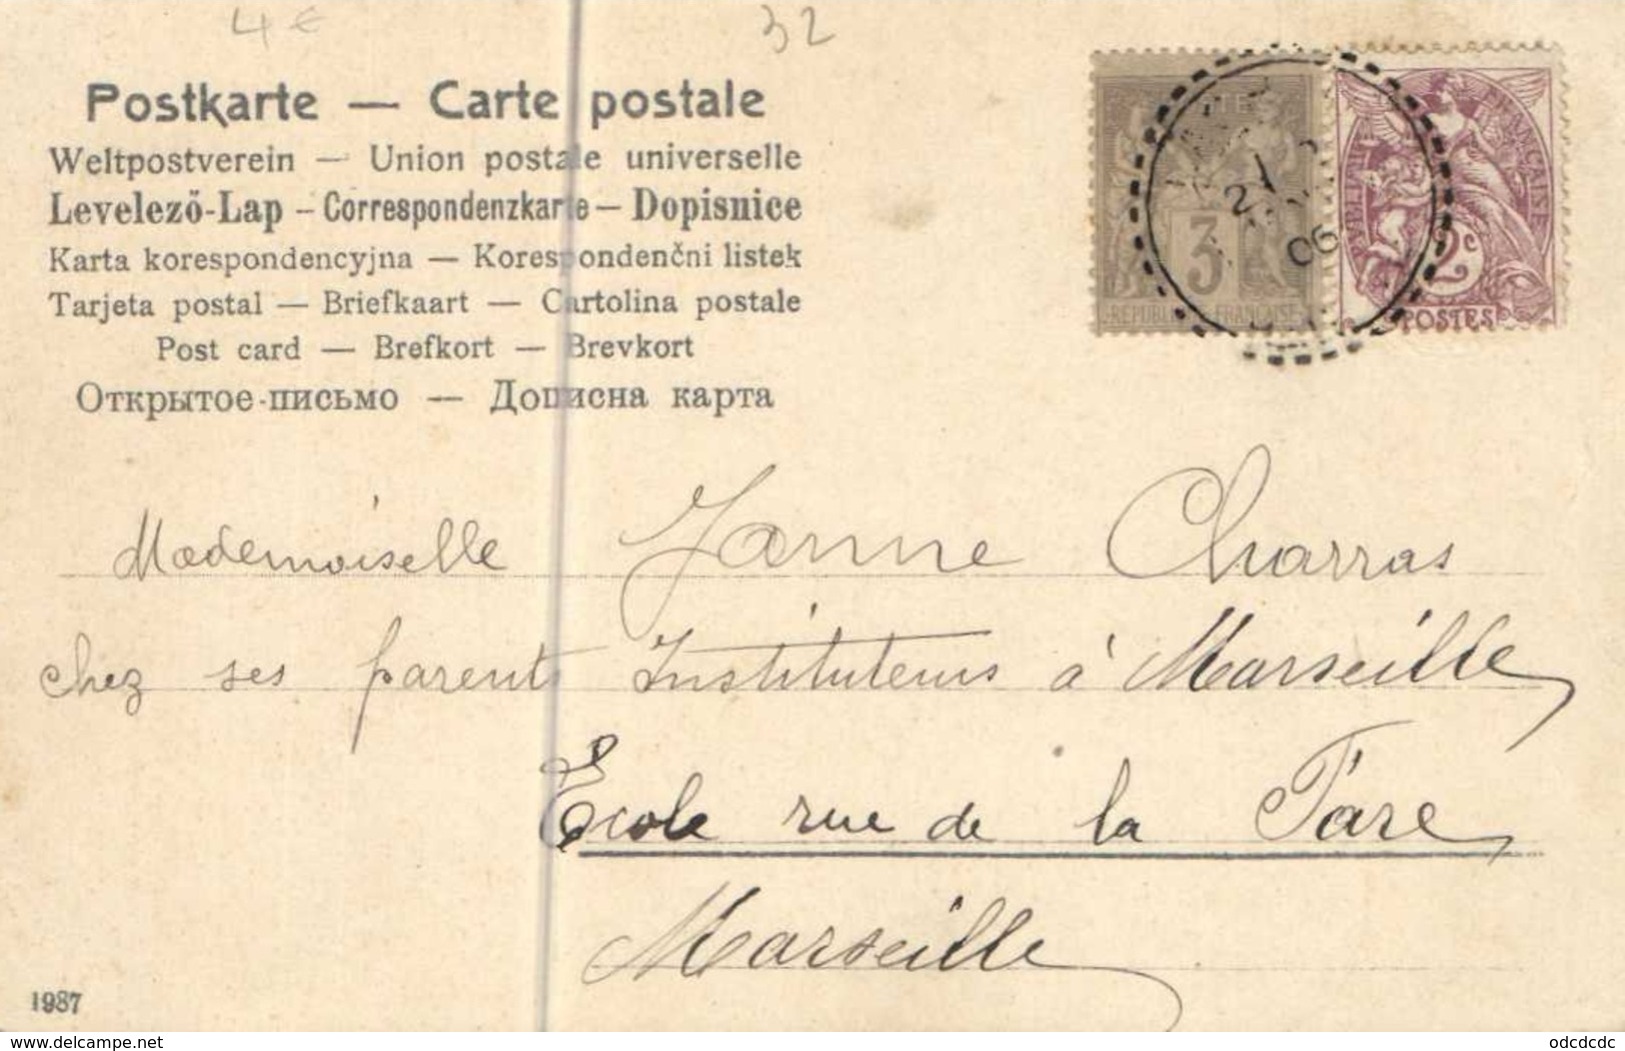 4€ 32
Postkarte — Carte postale
Weltpostverein — Union postale universelle
Levelező-Lap – Correspondenzkarte – Dopisnice
Karta korespondencyjna — Korespondenční listek
Tarjeta postal — Briefkaart — Cartolina postale
Post card — Brefkort — Brevkort
Открытое-письмо — Дописна карта
21
06
3
REPUBLIQUE FRANÇAISE
2c
POSTES
Mademoiselle Janne Charras
chez ses parents Instituteurs à Marseille
Ecole rue de la Pare
Marseille
1987
www.delcampe.net
odcdcdc